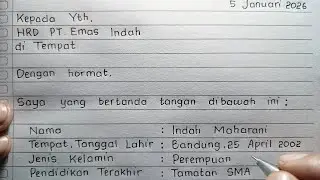 5 Januari 2026
Kepada Yth.
HRD PT. Emas Indah
di Tempat
Dengan hormat.
Saya yang bertanda tangan dibawah ini :
Nama : Indah Maharani
Tempat, Tanggal Lahir : Bandung, 25 April 2002
Jenis Kelamin : Perempuan
Pendidikan Terakhir : Tamatan SMA